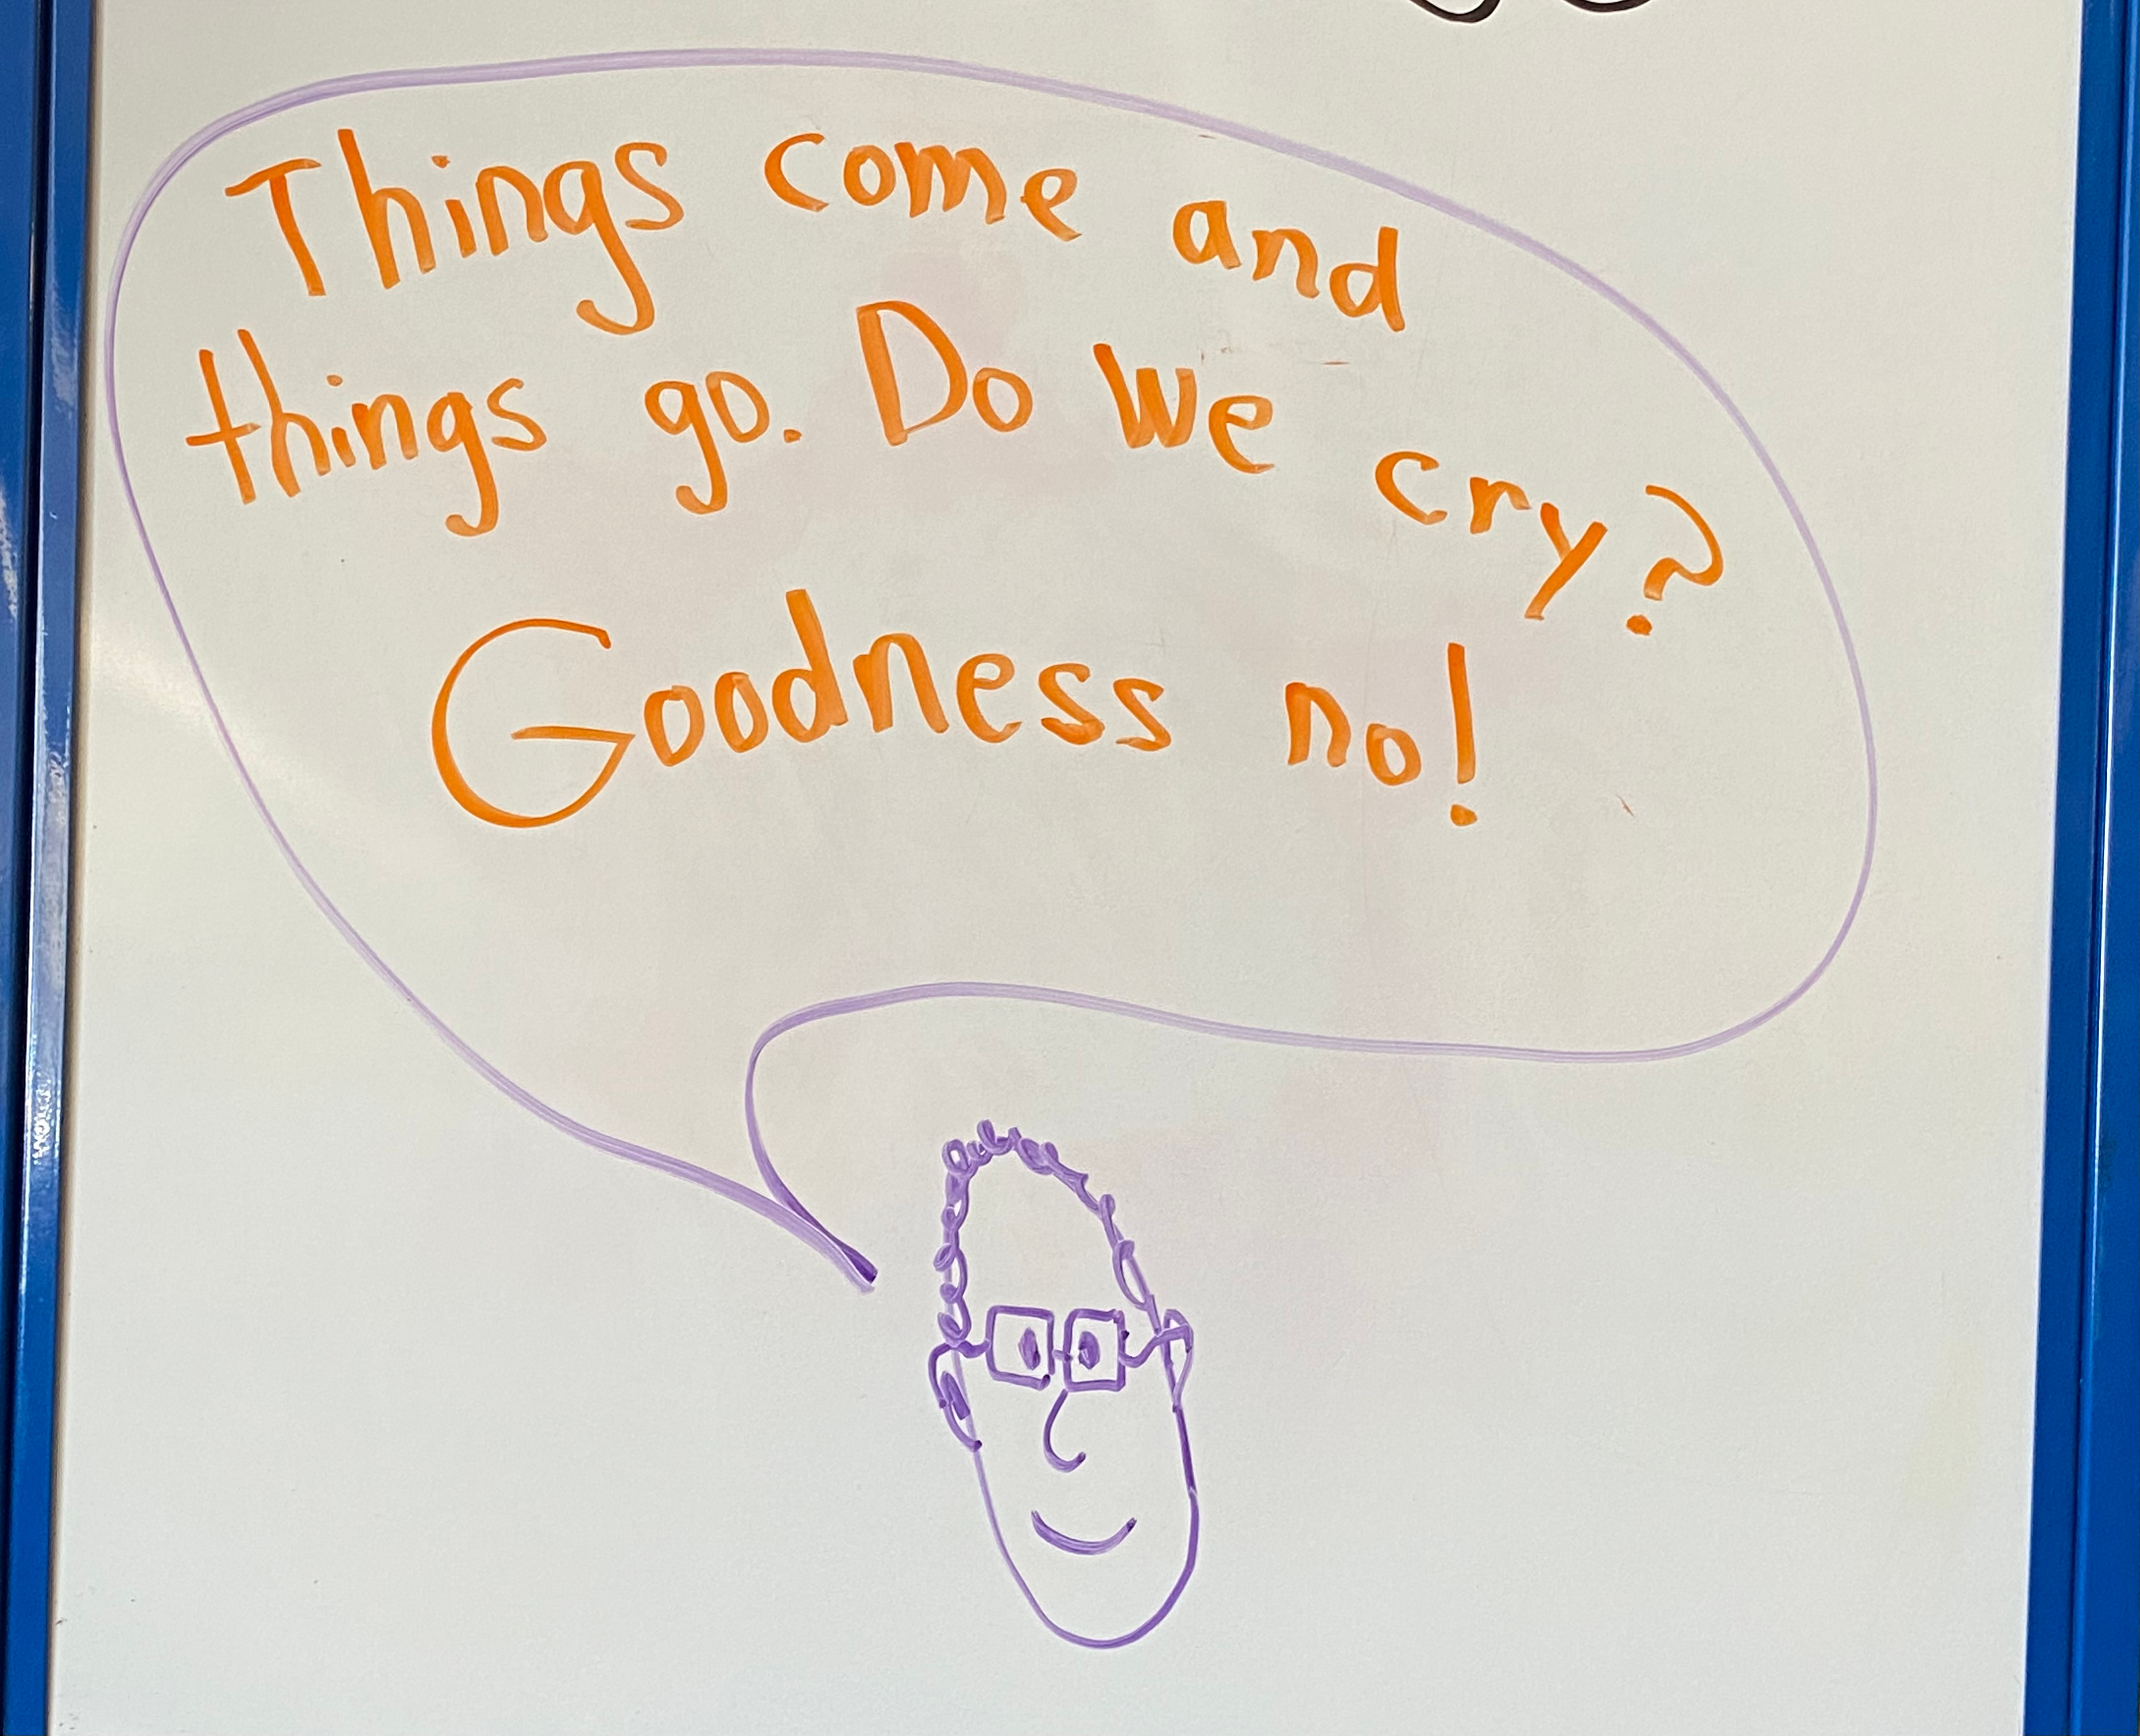 Things come and
things go. Do we cry?
Goodness no!